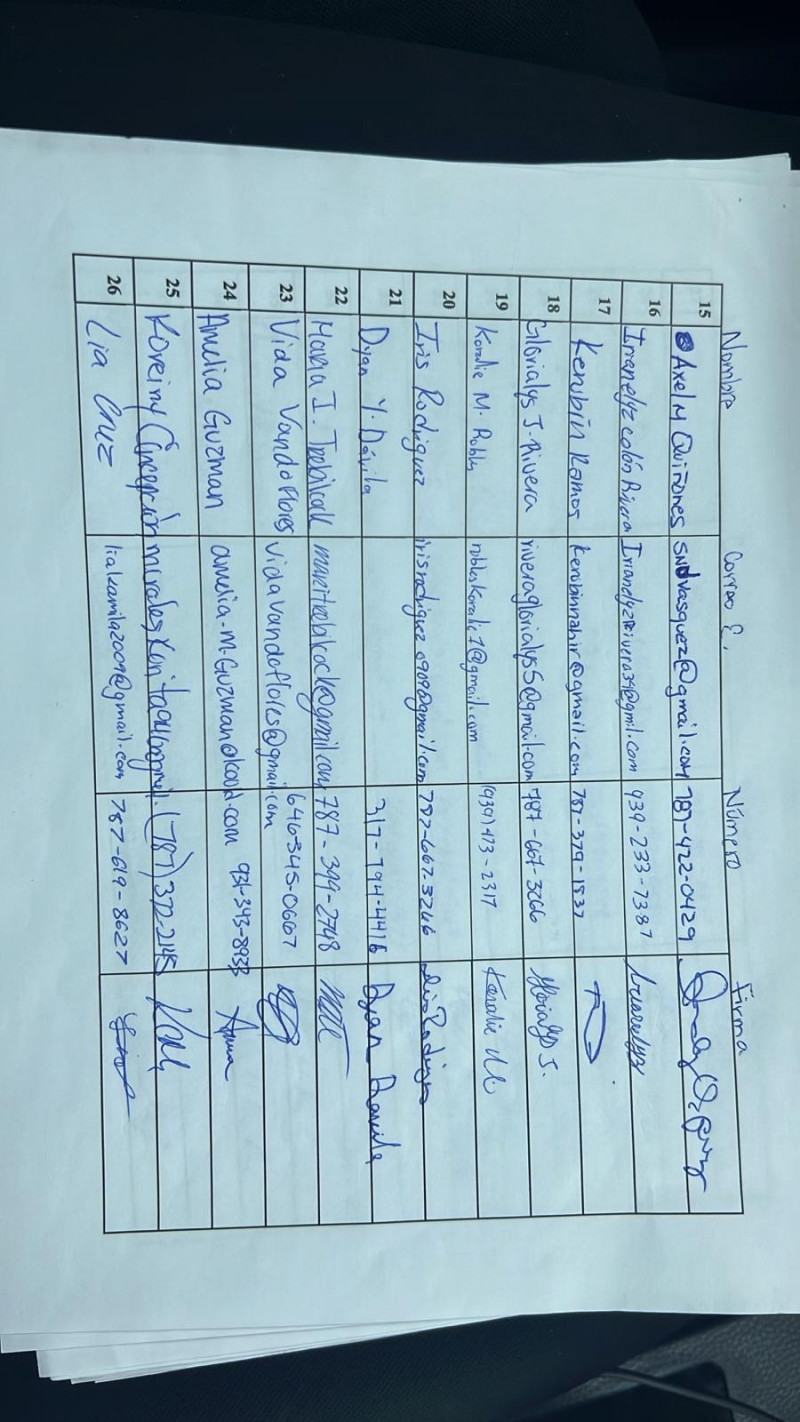 Nombre Correo E. Número Firma
15 Axel M Quiñones SNDVasquez@gmail.com 787-422-0429
16 Irianelyz Colón Rivera 939-233-7387 Irianelyz
17 Kerubin Ramos kerubinnahir@gmail.com 787-379-1837
18 Glorialys J. Rivera riveraglorialys5@gmail.com 787-667-3066 Glorialys J.
19 Koralie M. Robles robleskoralie1@gmail.com (939) 473-2317 Koralie
20 Iris Rodriguez irisrodriguez0909@gmail.com 787-667-3246 Iris Rodriguez
21 Dyan Y. Dávila 317-794-4416 Dyan Davila
22 Maria I. Trebilcock maritrebilcock@gmail.com 787-399-2748
23 Vida Vando Flores vidavandoflores@gmail.com 646-345-0667
24 Amelia Guzman amelia-M-Guzman@icloud.com 931-393-8933
25 Koreimy Concepción (787) 372-2145
26 Lia Cruz liakamila2009@gmail.com 787-619-8627